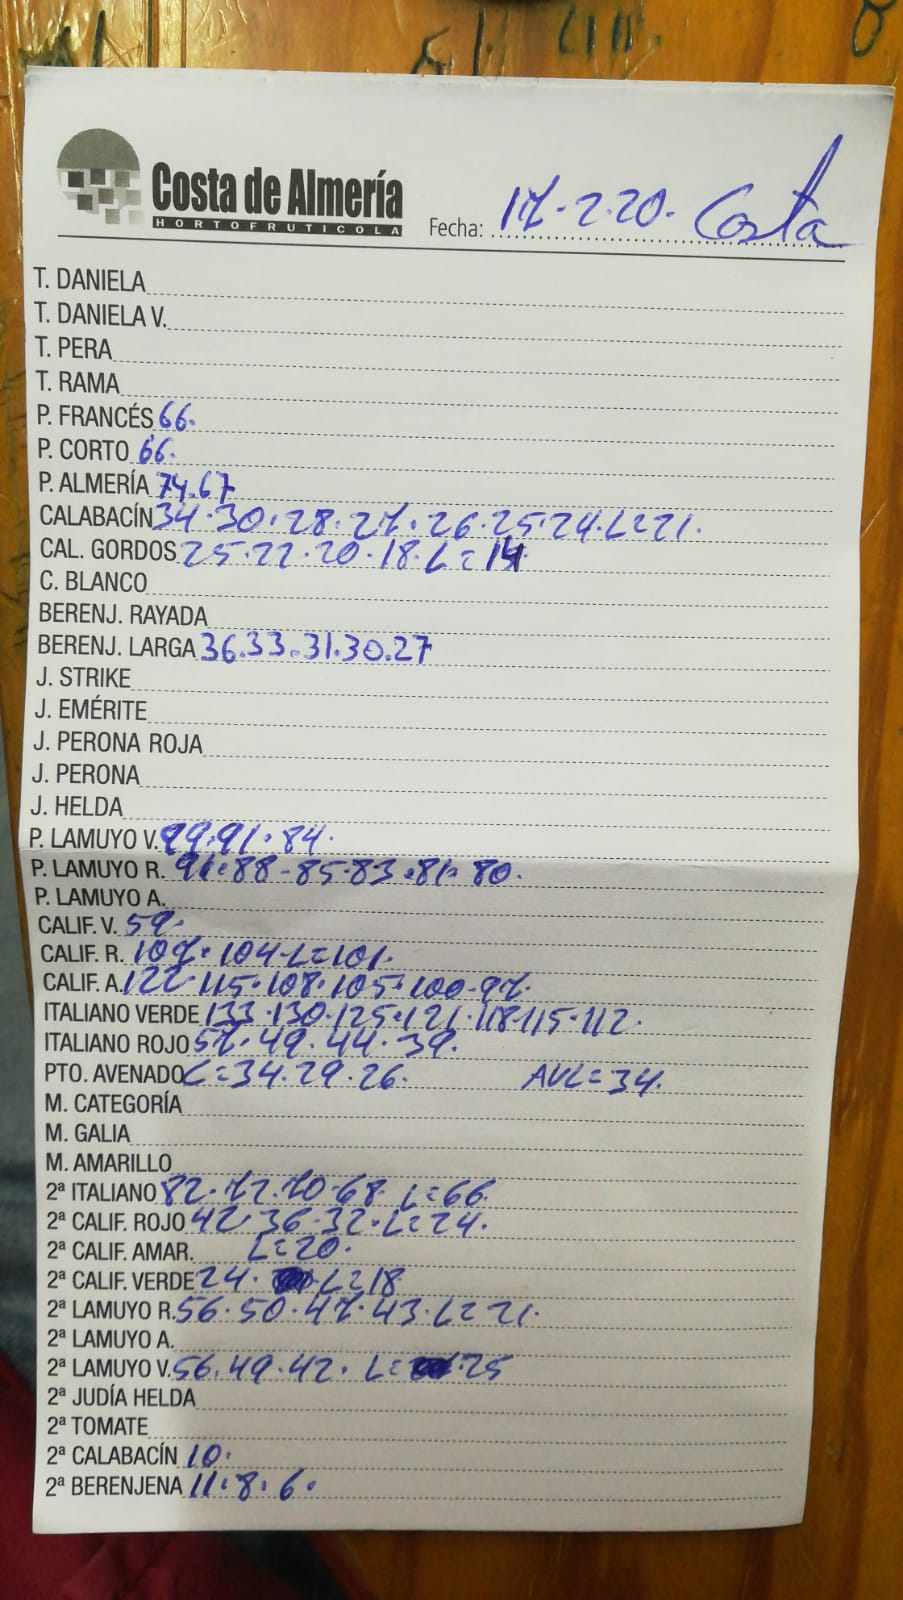 Costa de Almería
HORTOFRUTICOLA
Fecha: 17-2-20. Costa
T. DANIELA
T. DANIELA V.
T. PERA
T. RAMA
P. FRANCÉS 66.
P. CORTO 66.
P. ALMERÍA 74.67
CALABACÍN 34.30.28.27.26.25.24.L=21.
CAL. GORDOS 25.22.20.18.L=14
C. BLANCO
BERENJ. RAYADA
BERENJ. LARGA 36.33.31.30.27
J. STRIKE
J. EMÉRITE
J. PERONA ROJA
J. PERONA
J. HELDA
P. LAMUYO V. 99.91.84.
P. LAMUYO R. 91.88-85.83.81.80.
P. LAMUYO A.
CALIF. V. 59.
CALIF. R. 107.104-L=101.
CALIF. A. 122.115.108.105.100.97.
ITALIANO VERDE 133.130.125.121.118.115.112.
ITALIANO ROJO 57.49.44.39.
PTO. AVENADO L=34.29.26. AVL=34.
M. CATEGORÍA
M. GALIA
M. AMARILLO
2ª ITALIANO 82.77.70.68 L=66.
2ª CALIF. ROJO 42.36.32.L=24.
2ª CALIF. AMAR. L=20.
2ª CALIF. VERDE 24. L=18
2ª LAMUYO R. 56.50.47.43.L=21.
2ª LAMUYO A.
2ª LAMUYO V. 56.49.42. L= 25
2ª JUDÍA HELDA
2ª TOMATE
2ª CALABACÍN 10.
2ª BERENJENA 11.8.6.